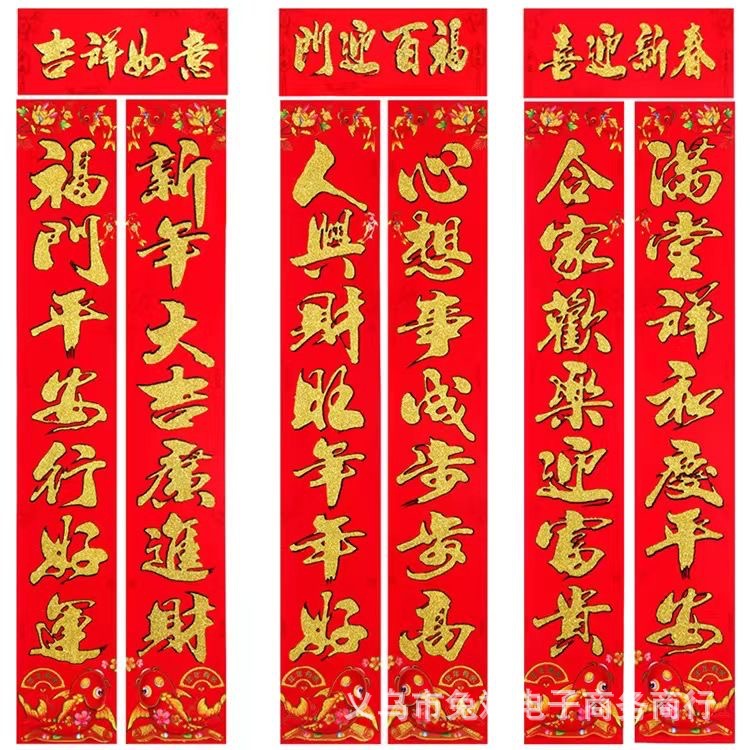 吉祥如意
福門平安行好運
新年大吉廣進財
門迎百福
人興財旺年年好
心想事成步步高
喜迎新春
合家歡樂迎富貴
滿堂祥和慶平安
义乌市兔电子商务商行